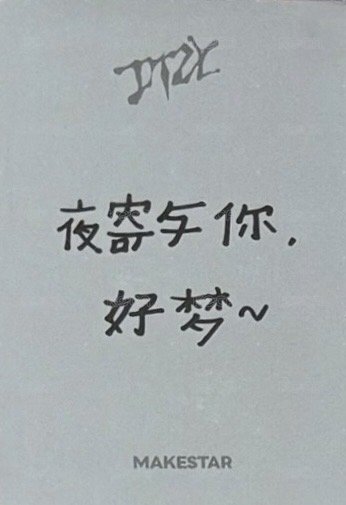 ITZY
夜寄与你.
好梦~
MAKESTAR